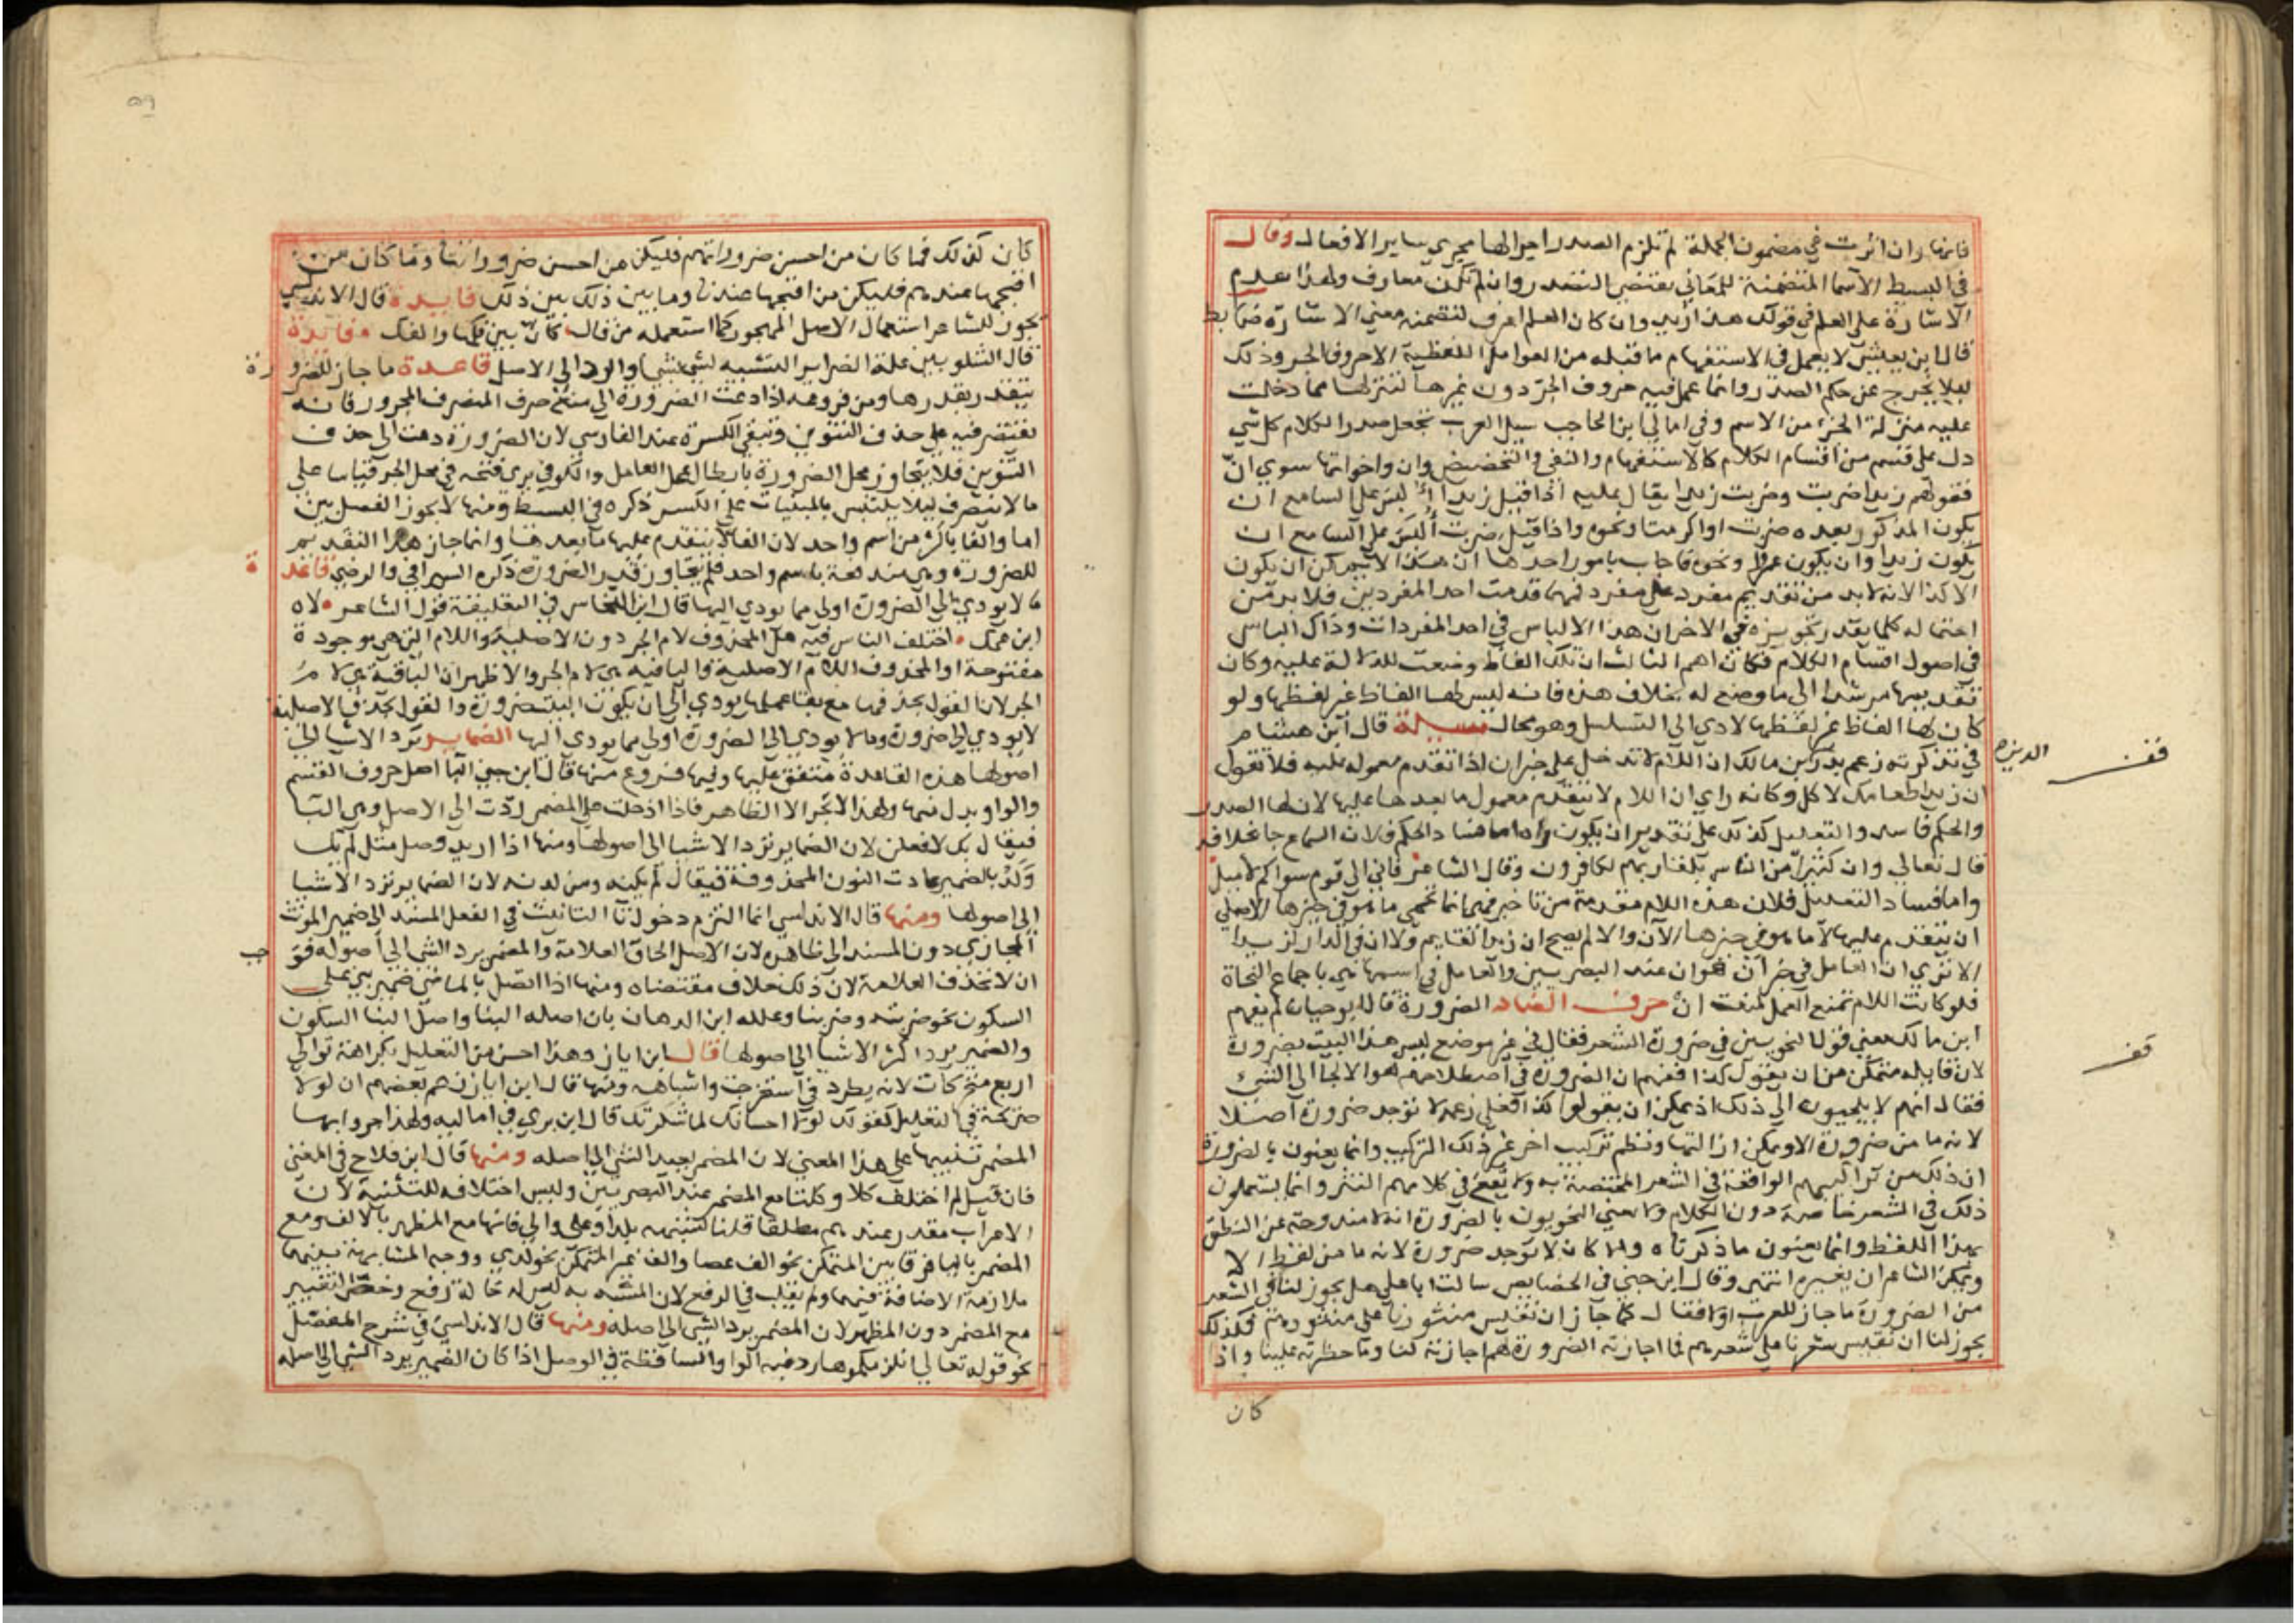 فانها وان اثرت في مضمون الجملة لم تلزم الصدر اجرا لها مجري ساير الافعال وقال
في البسيط الاسما المتضمنة للمعاني تقتضي التصدر وان لم تكن معارف ولهذا تقدم
الاشارة على العلم في قولك هذا زيد وان كان العلم اعرف لتضمنه معني الاشارة ضابط
قال ابن يعيش لا يعمل في الاستفهام ما قبله من العوامل اللفظية الا حروف الجر وذلك
ليلا يخرج عن حكم الصدر وانما عمل فيه حروف الجر دون غيرها لتنزلها مما دخلت
عليه منزلة الجزء من الاسم وفي امالي ابن الحاجب سبيل العرب تجعل صدر الكلام كل شي
دل على قسم من اقسام الكلام كالاستفهام والنفي والتحضيض وان واخواتها سوي ان
فقولهم زيدا ضربت وضربت زيدا يقال عليه اذا قيل زيدا لبس على السامع ان
يكون المذكور بعده ضربت او اكرمت او نحوه واذا قيل ضربت التبس على السامع ان
يكون زيدا وان يكون عمرا ونحوه فاجاب بامور احدها ان هذا لا يمكن ان يكون
الا كذا لانه لا بد من تقديم مفرد على مفرد فمهما قدمت احد المفردين فلا بد من
احتماله كلما يقدر تجويزه في الاخر ان هذا الالباس في احد المفردات وذاك الباس
في اصول اقسام الكلام فكان اهم الثالث ان تلك الفاظ وضعت للدلالة عليه وكان
تقديمها مرشدا الى ما وضع له بخلاف هذه فانه ليس لها الفاظ غير لفظها ولو
كان لها الفاظ غير لفظها لادي الى التسلسل وهو محال مسيلة قال ابن هشام
في تذكرته زعم بدر بن مالك ان اللام لا تدخل على خبر ان اذا تقدم معموله عليه فلا تقول
الدين
قف
ان زيدا طعامك لاكل وكانه راي ان اللام لا يتقدم معمول ما بعدها عليها لان لها الصدر
والحكم فاسد والتعليل كذلك على تقدير ان يكون اما فساد الحكم فلان السماع جا بخلافه
قال تعالي وان كثيرا من الناس بلقا ربهم لكافرون وقال الشاعر فاني الى قوم سواكم لاميل
واما فساد التعليل فلان هذه اللام مقدمة من تاخير فهي انما تحمي ما هو في حيزها الاصلي
ان يتقدم عليها لا ما هو في حيزها الان والا لم يصح ان زيدا لقايم ولا ان في الدار لزيدا
الا تري ان العامل في خبر ان هو ان عند البصريين والعامل في اسمها هي باجماع النحاة
فلو كانت اللام تمنع العمل لمنعت ان حرف الضاد الضرورة قال ابو حيان لم يفهم
ابن مالك معني قول النحويين في ضرورة الشعر فقال في غير موضع ليس هذا البيت بضرورة
قف
لان قايله متمكن من ان يقول كذا ففهم ان الضرورة في اصطلاحهم هو الالجا الى الشيء
فقال انهم لا يلجيون الى ذلك اذ يمكن ان يقولوا كذا فعلى زعمه لا توجد ضرورة اصلا
لانه ما من ضرورة الا ويمكن ازالتها ونظم تركيب اخر غير ذلك التركيب وانما يعنون بالضرورة
ان ذلك من تراكيبهم الواقعة في الشعر المختصة به ولا يقع في كلامهم النثر وانما يستعملون
ذلك في الشعر خاصة دون الكلام ولا يعني النحويون بالضرورة انه لا مندوحة عن النطق
بهذا اللفظ وانما يعنون ما ذكرناه والا كان لا توجد ضرورة لانه ما من لفظ الا
ويمكن الشاعر ان يغيره انتهى وقال ابن جني في الخصايص سالت ابا علي هل يجوز لنا في الشعر
من الضرورة ما جاز للعرب اولا فقال كما جاز ان نقيس منثورنا على منثورهم فكذلك
يجوز لنا ان نقيس شعرنا على شعرهم فما اجازته الضرورة لهم اجازته لنا وما حظرته علينا واذا
كان
٥٩
كان كذلك فما كان من احسن ضروراتهم فليكن من احسن ضروراتنا وما كان من
اقبحها عندهم فليكن من اقبحها عندنا وما بين ذلك بين ذلك فايدة قال الاندلسي
يجوز للشاعر استعمال الاصل المهجور كما استعمله من قال كان بين فكها والفك فايدة
قال الشلوبين علة الضراير التشبيه لشي بشي او الرد الى الاصل قاعدة ما جاز للضرورة
يتقدر بقدرها ومن فروعه اذا دعت الضرورة الى منع صرف المنصرف المجرور فانه
يقتصر فيه على حذف التنوين وتبقي الكسرة عند الفارسي لان الضرورة دعت الى حذف
التنوين فلا يتجاوز محل الضرورة بابطال عمل العامل والكوفي يري فتحه في محل الجر قياسا على
ما لا ينصرف ليلا يلتبس بالمبنيات على الكسر ذكره في البسيط ومنها لا يجوز الفصل بين
اما والفا باكثر من اسم واحد لان الفا لا يتقدم عليها ما بعدها وانما جاز هذا التقديم
للضرورة وهي مندفعة باسم واحد فلم يتجاوز قدر الضرورة ذكره السيرافي والرضي قاعدة
ما لا يودي الى الضرورة اولي مما يودي اليها قال ابن النحاس في التعليقة قول الشاعر لاه
ابن عمك اختلف الناس فيه هل المحذوف لام الجر دون الاصلية واللام التي هي موجودة
مفتوحة او المحذوف اللام الاصلية والباقية هي لام الجر والاظهر ان الباقية هي لام
الجر لان القول بحذفها مع بقا عملها يودي الى ان يكون البيت ضرورة والقول بحذف الاصلية
لا يودي الى ضرورة وما لا يودي الى الضرورة اولى مما يودي اليها الضماير ترد الاشيا الى
اصولها هذه القاعدة متفق عليها وفيها فروع منها قال ابن جني البا اصل حروف القسم
والواو بدل منها ولهذا لا تجر الا الظاهر فاذا ادخلت على المضمر ردت الى الاصل وهي البا
فيقال بك لافعلن لان الضماير ترد الاشيا الى اصولها ومنها اذا اريد وصل مثل لم يك
ولد بالضمير عادت النون المحذوفة فيقال لم يكنه ومن لدنه لان الضماير ترد الاشيا
الى اصولها ومنها قال الاندلسي انما التزم دخول تا التانيث في الفعل المسند الى ضمير المونث
المجازي دون المسند الى ظاهره لان الاصل الحاق العلامة والمضمر يرد الشي الى اصوله فوجب
ان لا تحذف العلامة لان ذلك خلاف مقتضاه ومنها اذا اتصل بالماضي ضمير بني على
السكون نحو ضربت وضربنا وعلله ابن الدهان بان اصله البنا واصل البنا السكون
والضمير يرد اكثر الاشيا الى اصولها قال ابن اياز وهذا احسن من التعليل بكراهة توالي
اربع متحركات لانه يطرد في استخرجت واشباهه ومنها قال ابن اياز زعم بعضهم ان لولا
صريحة في التعليل كقولك لولا احسانك لما شكرتك قال ابن بري في اماليه ولهذا جروا بها
المضمر تنبيها على هذا المعني لان المضمر يعيد الشي الى اصله ومنها قال ابن فلاح في المغني
فان قيل لم اختلف كلا وكلتا مع المضمر عند البصريين وليس اختلافه للتثنية لان
الاعراب مقدر عندهم مطلقا قلنا لشبهه بلدا وعلى والى فانها مع المظهر بالالف ومع
المضمر باليا فرقا بين المتمكن نحو الف عصا والف غير المتمكن نحو لدي ووجه المشابهة بينهما
ملازمة الاضافة فيهما ولم تقلب في الرفع لان المشبه به ليس له حالة رفع وخص التغيير
مع المضمر دون المظهر لان المضمر يرد الشي الى اصله ومنها قال الاندلسي في شرح المفصل
نحو قوله تعالي انلزمكموها رد فيه الواو الساقطة في الوصل اذا كان الضمير يرد الشي الى اصله